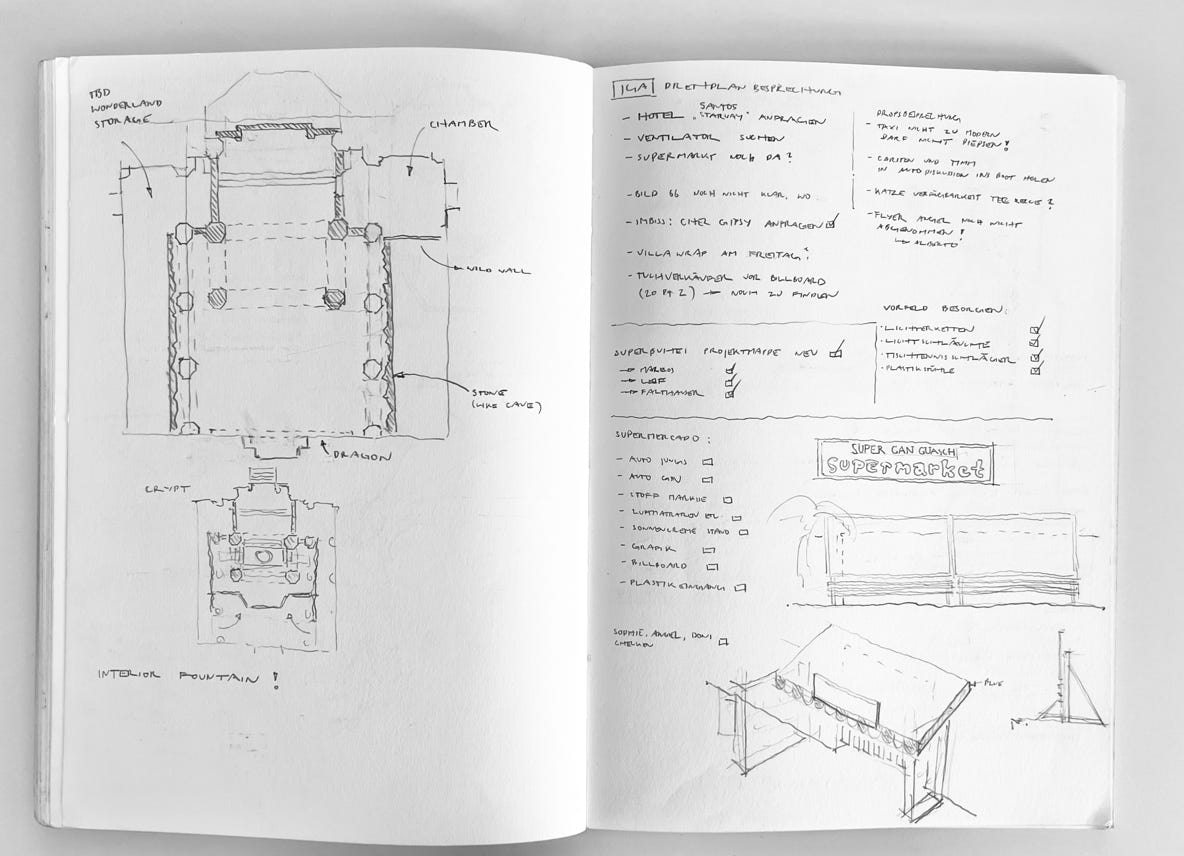 TBD
WONDERLAND
STORAGE
CHAMBER
WILD WALL
STONE
(LIKE CAVE)
DRAGON
CRYPT
INTERIOR FOUNTAIN !
DREHPLAN BESPRECHUNG
SANTOS
- HOTEL „ ANFRAGEN
- VENTILATOR SUCHEN
- SUPERMARKT NOCH DA?
- BILD 66 NOCH NICHT KLAR, WO
- IMBISS: CHEF GIPSY ANFRAGEN
- VILLA WRAP AM FREITAG?
- TUCHVERKÄUFER VOR BILLBOARD
(20 PT 2) → NOCH ZU FINDEN
PROPSBESPRECHUNG
- TAXI NICHT ZU MODERN
DARF NICHT PIEPSEN!
- CARSTEN UND TIMM
IN AUTODISKUSSION INS BOOT HOLEN
- KATZE VERFÜGBARKEIT ?
- FLYER NOCH NICHT
ABGENOMMEN!
ALBERTO
VORFELD BESORGEN:
· LICHTERKETTEN
· LICHTSCHLÄUCHE
· TISCHTENNISSCHLÄGER
· PLASTIKSTÜHLE
PROJEKTMAPPE NEU
SUPERMERCADO:
- AUTO JUNGS
- AUTO
- STOFF MARKISE
- LUFTMATRATZEN ETC.
- SONNENCREME STAND
- GRAFIK
- BILLBOARD
- PLASTIK EINGANG
SUPER CAN GUASCH
Supermarket
SOPHIE, ANGEL, DONI
CHECKEN
BLUE